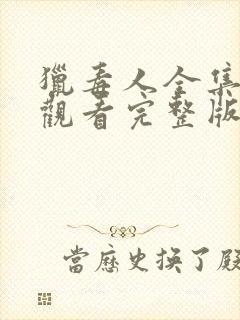 獵毒人全集
觀看完整版
當歷史換了